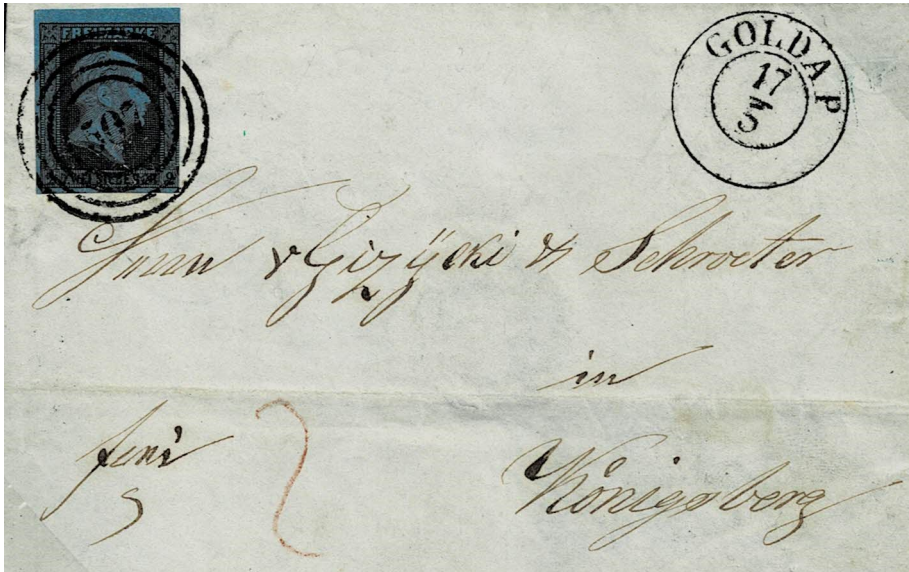 FREIMARKE
2 ZWEI SILBERGR. 2
GOLDAP
17
5
Herrn v Gizÿcki & Schroeter
in
Königsberg